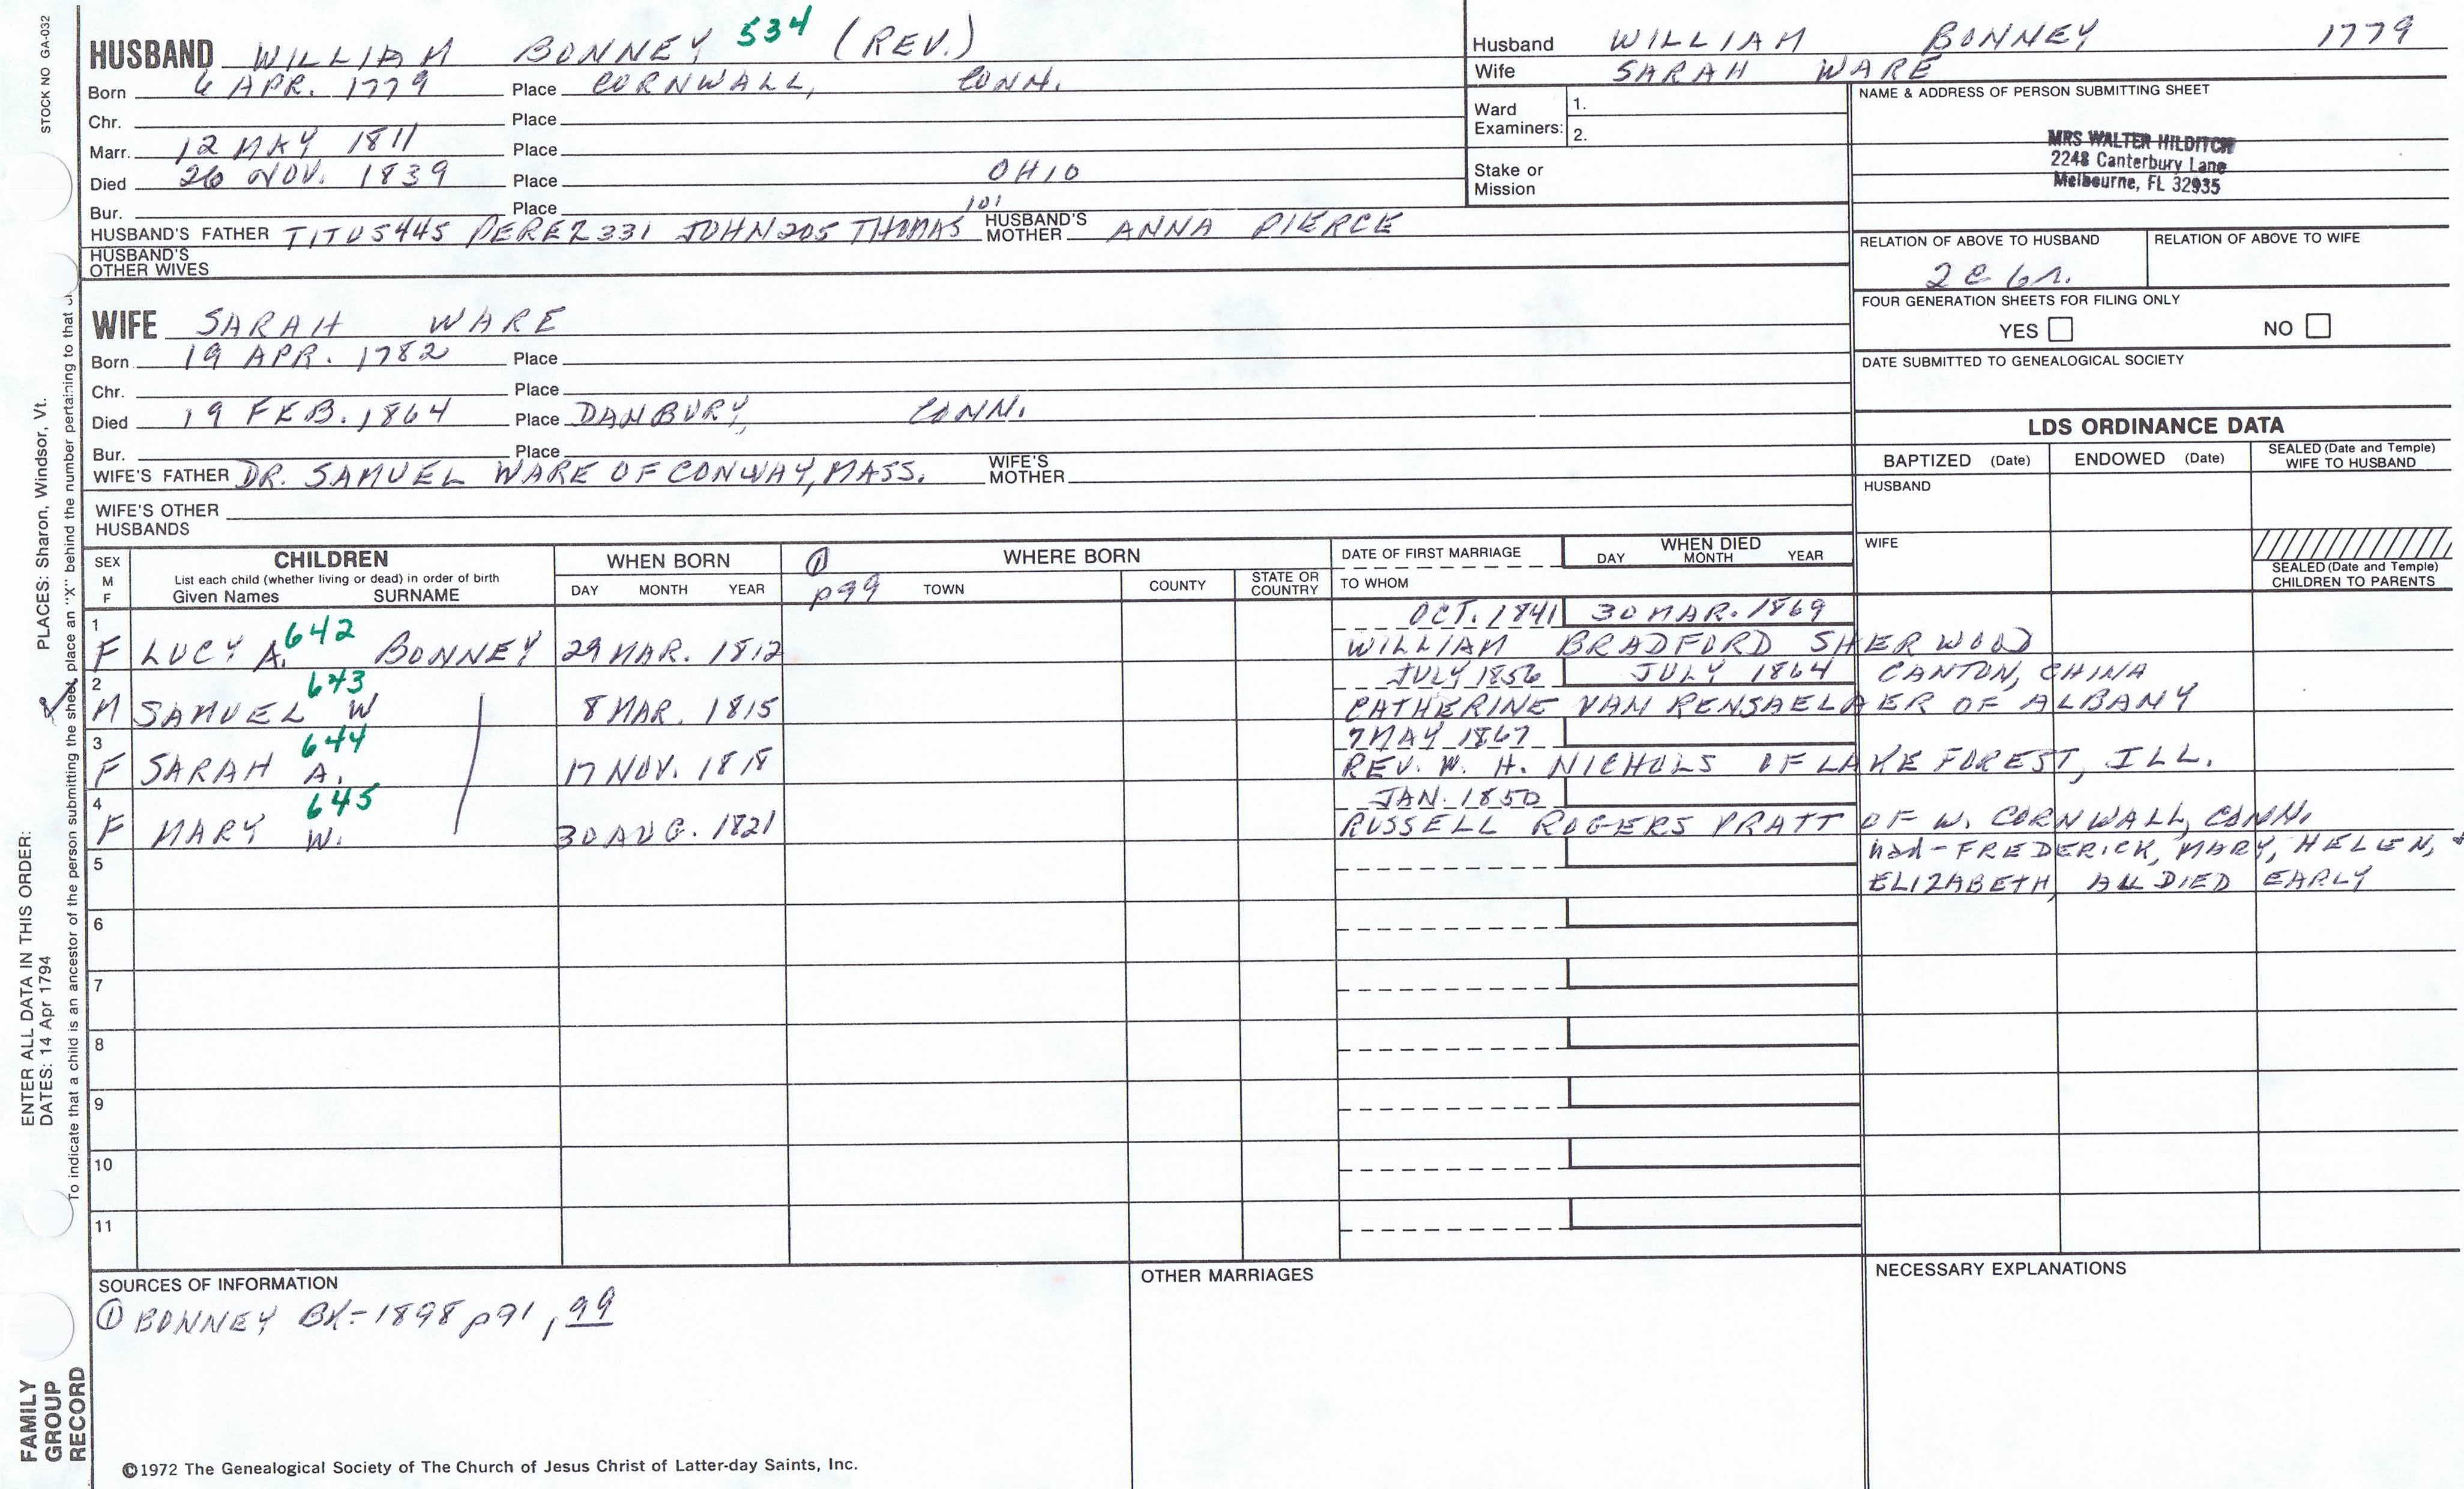 STOCK NO GA-032
HUSBAND WILLIAM BONNEY 534 (REV.)
Born 6 APR. 1779 Place CORNWALL, CONN.
Chr. Place
Marr. 12 MAY 1811 Place
Died 26 NOV. 1839 Place OHIO
Bur. Place
101
HUSBAND'S FATHER TITUS 445 PEREZ 331 JOHN 205 THOMAS HUSBAND'S MOTHER ANNA PIERCE
HUSBAND'S OTHER WIVES
Husband WILLIAM BONNEY 1779
Wife SARAH WARE
Ward Examiners: 1.
2.
Stake or Mission
NAME & ADDRESS OF PERSON SUBMITTING SHEET
MRS WALTER HILDITCH
2248 Canterbury Lane
Melbourne, FL 32935
RELATION OF ABOVE TO HUSBAND
2C 6r.
RELATION OF ABOVE TO WIFE
FOUR GENERATION SHEETS FOR FILING ONLY
YES NO
DATE SUBMITTED TO GENEALOGICAL SOCIETY
WIFE SARAH WARE
Born 19 APR. 1782 Place
Chr. Place
Died 19 FEB. 1864 Place DANBURY, CONN.
Bur. Place
WIFE'S FATHER DR. SAMUEL WARE OF CONWAY, MASS. WIFE'S MOTHER
WIFE'S OTHER HUSBANDS
LDS ORDINANCE DATA
BAPTIZED (Date) ENDOWED (Date) SEALED (Date and Temple) WIFE TO HUSBAND
HUSBAND
WIFE
SEALED (Date and Temple) CHILDREN TO PARENTS
SEX M F
CHILDREN
List each child (whether living or dead) in order of birth
Given Names SURNAME
WHEN BORN
DAY MONTH YEAR
① p99
WHERE BORN
TOWN COUNTY STATE OR COUNTRY
DATE OF FIRST MARRIAGE
TO WHOM
WHEN DIED
DAY MONTH YEAR
1 OCT. 1841 30 MAR. 1869
F LUCY A. 642 BONNEY 29 MAR. 1812 WILLIAM BRADFORD SHERWOOD
2 JULY 1856 JULY 1864 CANTON, CHINA
M SAMUEL W 643 8 MAR. 1815 CATHERINE VAN RENSAELAER OF ALBANY
3 7 MAY 1867
F SARAH A. 644 17 NOV. 1818 REV. W. H. NICHOLS OF LAKE FOREST, ILL.
4 JAN. 1850
F MARY W. 645 30 AUG. 1821 RUSSELL ROGERS PRATT OF W. CORNWALL, CONN.
5 had - FREDERICK, MARY, HELEN, &
ELIZABETH, ALL DIED EARLY
6
7
8
9
10
11
SOURCES OF INFORMATION
① BONNEY BK-1898 p91, 99
OTHER MARRIAGES
NECESSARY EXPLANATIONS
©1972 The Genealogical Society of The Church of Jesus Christ of Latter-day Saints, Inc.
FAMILY GROUP RECORD
ENTER ALL DATA IN THIS ORDER:
DATES: 14 Apr 1794
PLACES: Sharon, Windsor, Vt.
To indicate that a child is an ancestor of the person submitting the sheet, place an "X" behind the number pertaining to that